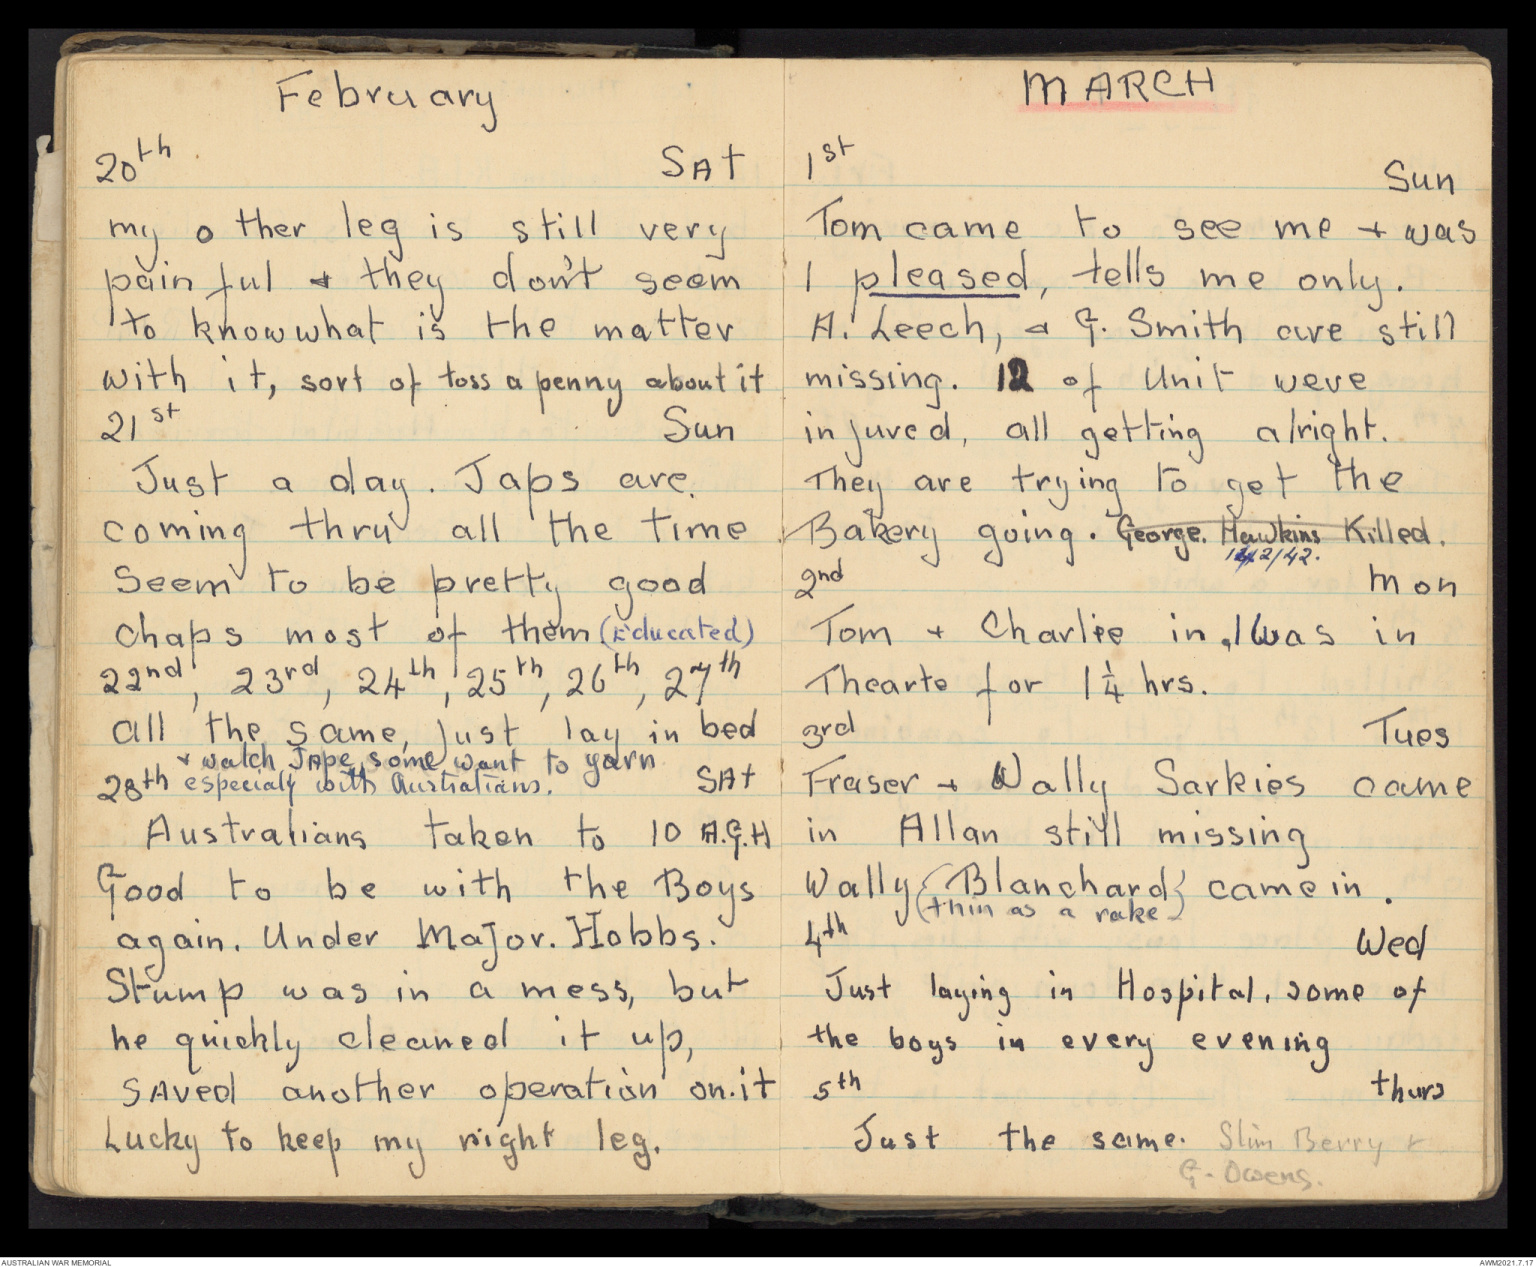 February
20th SAt
my other leg is still very
painful + they don't seem
to know what is the matter
with it, sort of toss a penny about it
21st Sun
Just a day. Japs are.
coming thru all the time
seem to be pretty good
chaps most of them (Educated)
22nd, 23rd, 24th, 25th, 26th, 27th
all the same, Just lay in bed
+ watch Japs, some want to yarn
especialy with Australians.
28th SAt
Australians taken to 10 A.G.H
Good to be with the Boys
again. Under Major. Hobbs.
Stump was in a mess, but
he quickly cleaned it up,
SAVed another operation on.it
Lucky to keep my right leg.
MARCH
1st Sun
Tom came to see me + was
I pleased, tells me only.
A. Leech, + G. Smith are still
missing. 12 of Unit were
injured, all getting alright.
They are trying to get the
Bakery going. George. Hawkins Killed.
12/2/42.
2nd Mon
Tom + Charlie in, I was in
Thearte for 1¼ hrs.
3rd Tues
Fraser + Wally Sarkies came
in Allan still missing
Wally {Blanchard} came in.
(thin as a rake)
4th Wed
Just laying in Hospital, some of
the boys in every evening
5th thurs
Just the same. Slim Berry +
G. Owens.
AUSTRALIAN WAR MEMORIAL
AWM2021.7.17